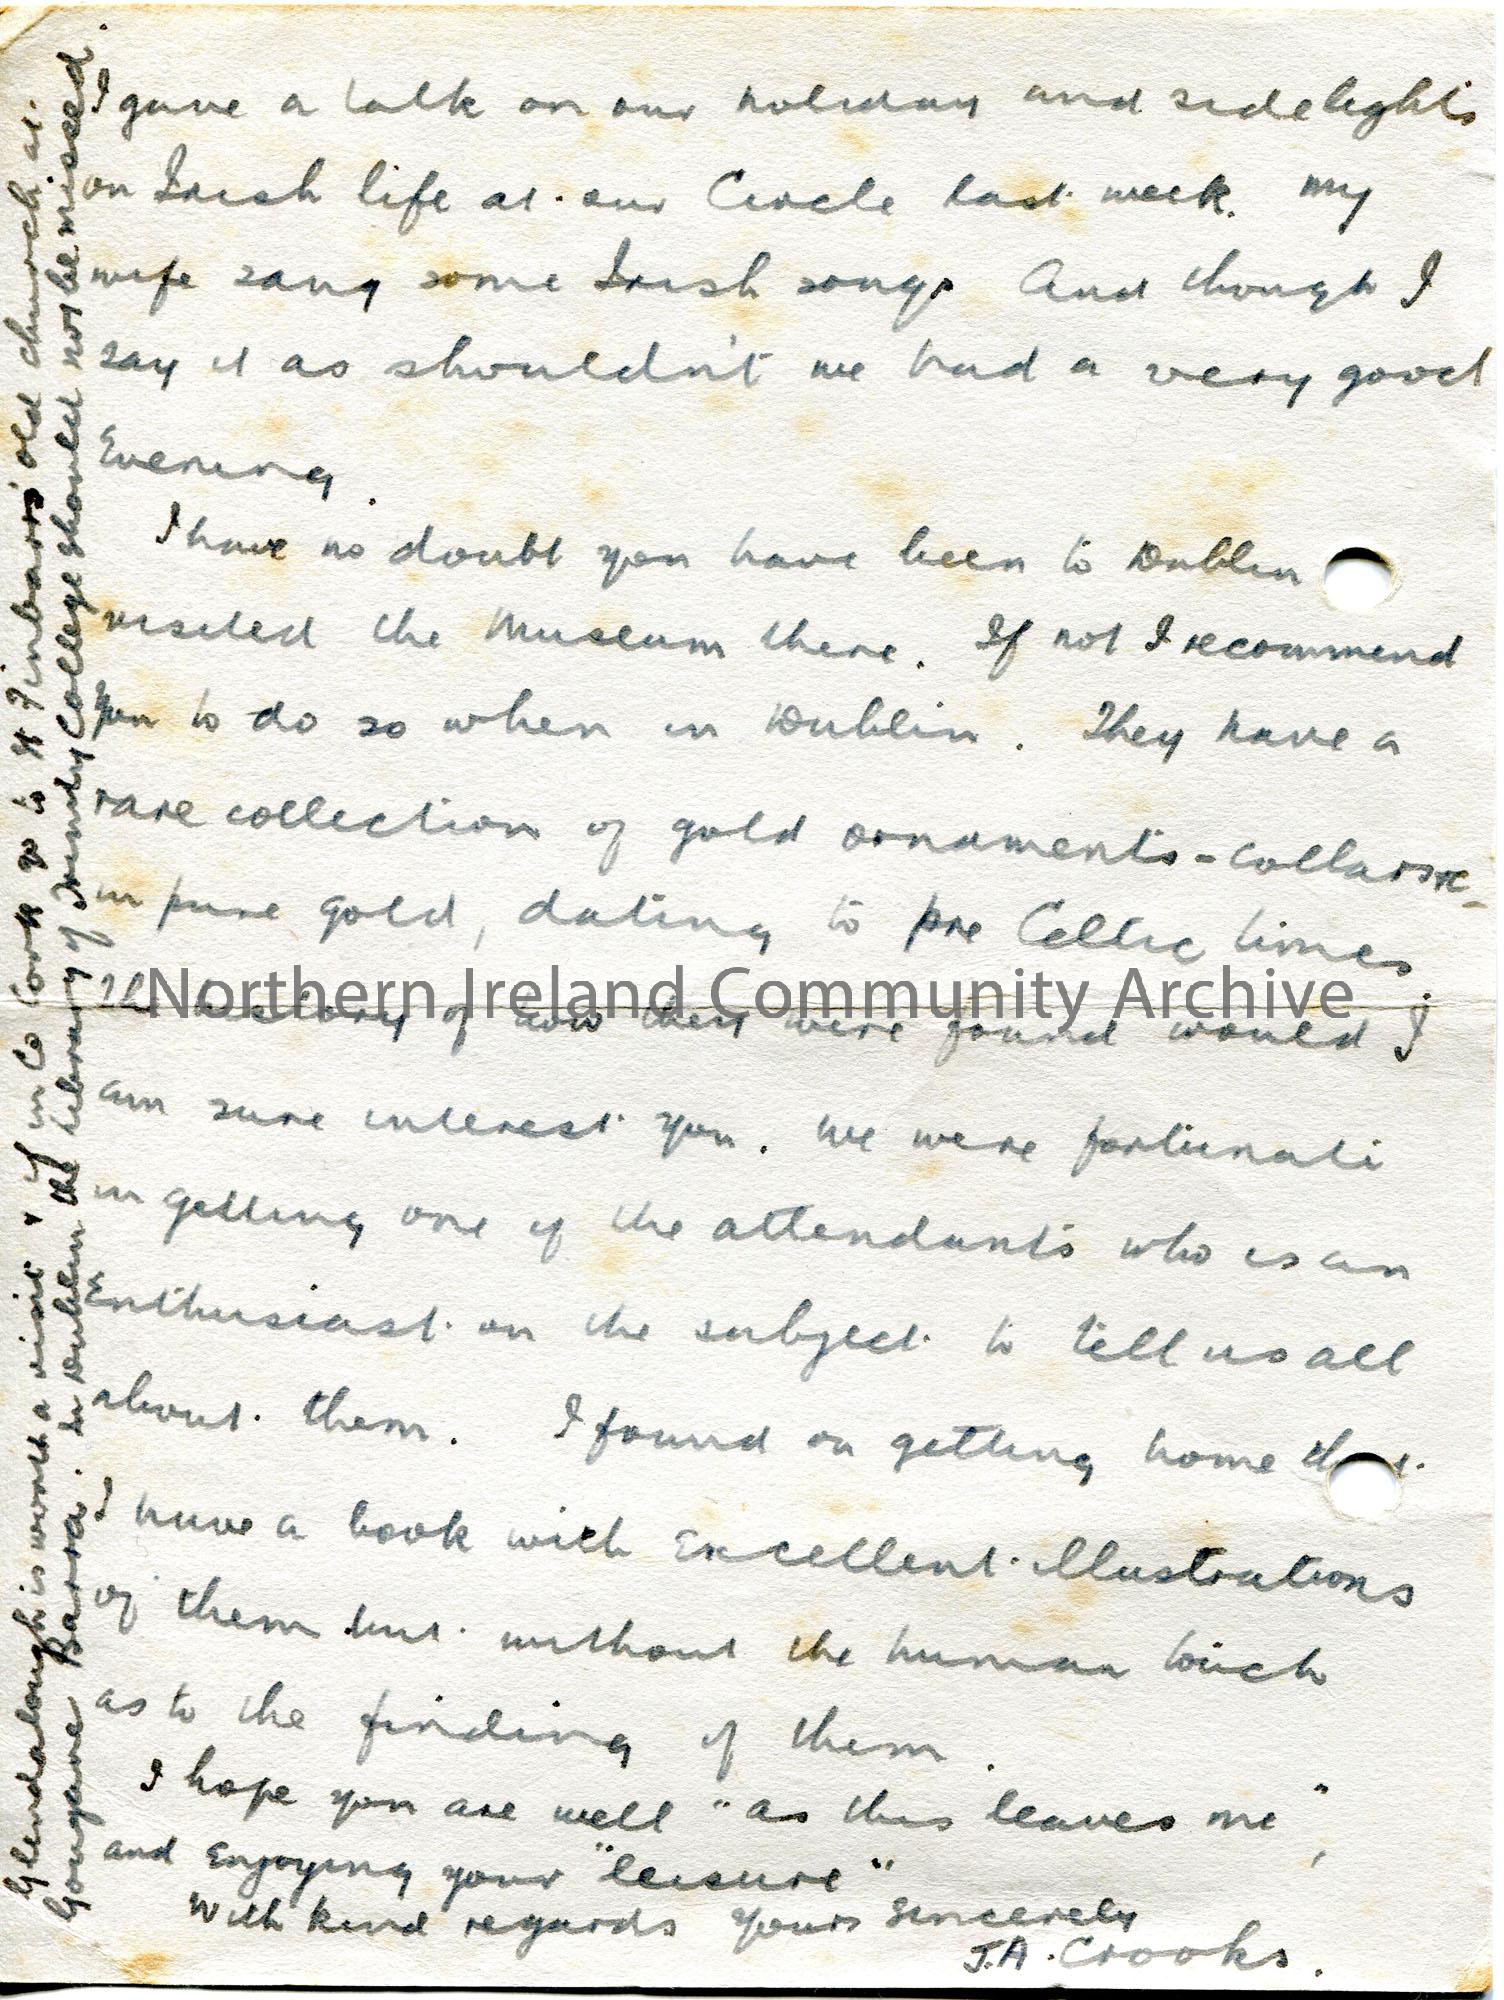 I gave a talk on our holiday and sidelights
on Irish life at our Circle last week. My
wife sang some Irish songs And though I
say it as shouldn't we had a very good
Evening.
I have no doubt you have been to Dublin
visited the Museum there. If not I recommend
you to do so when in Dublin. They have a
rare collection of gold ornaments - collars etc
in pure gold, dating to pre Celtic times
The history of how they were found would I
am sure interest you. We were fortunate
in getting one of the attendants who is an
Enthusiast on the subject to tell us all
about them. I found on getting home that
I have a book with Excellent illustrations
of them but without the human touch
as to the finding of them.
I hope you are well "as this leaves me",
and Enjoying your "leisure"
With kind regards Yours Sincerely
J.A. Crooks.
Glendalough is worth a visit & if in Co Cork go to St Finbarrs old church at
Gougane Barra. In Dublin the library of Trinity College should not be missed.
Northern Ireland Community Archive